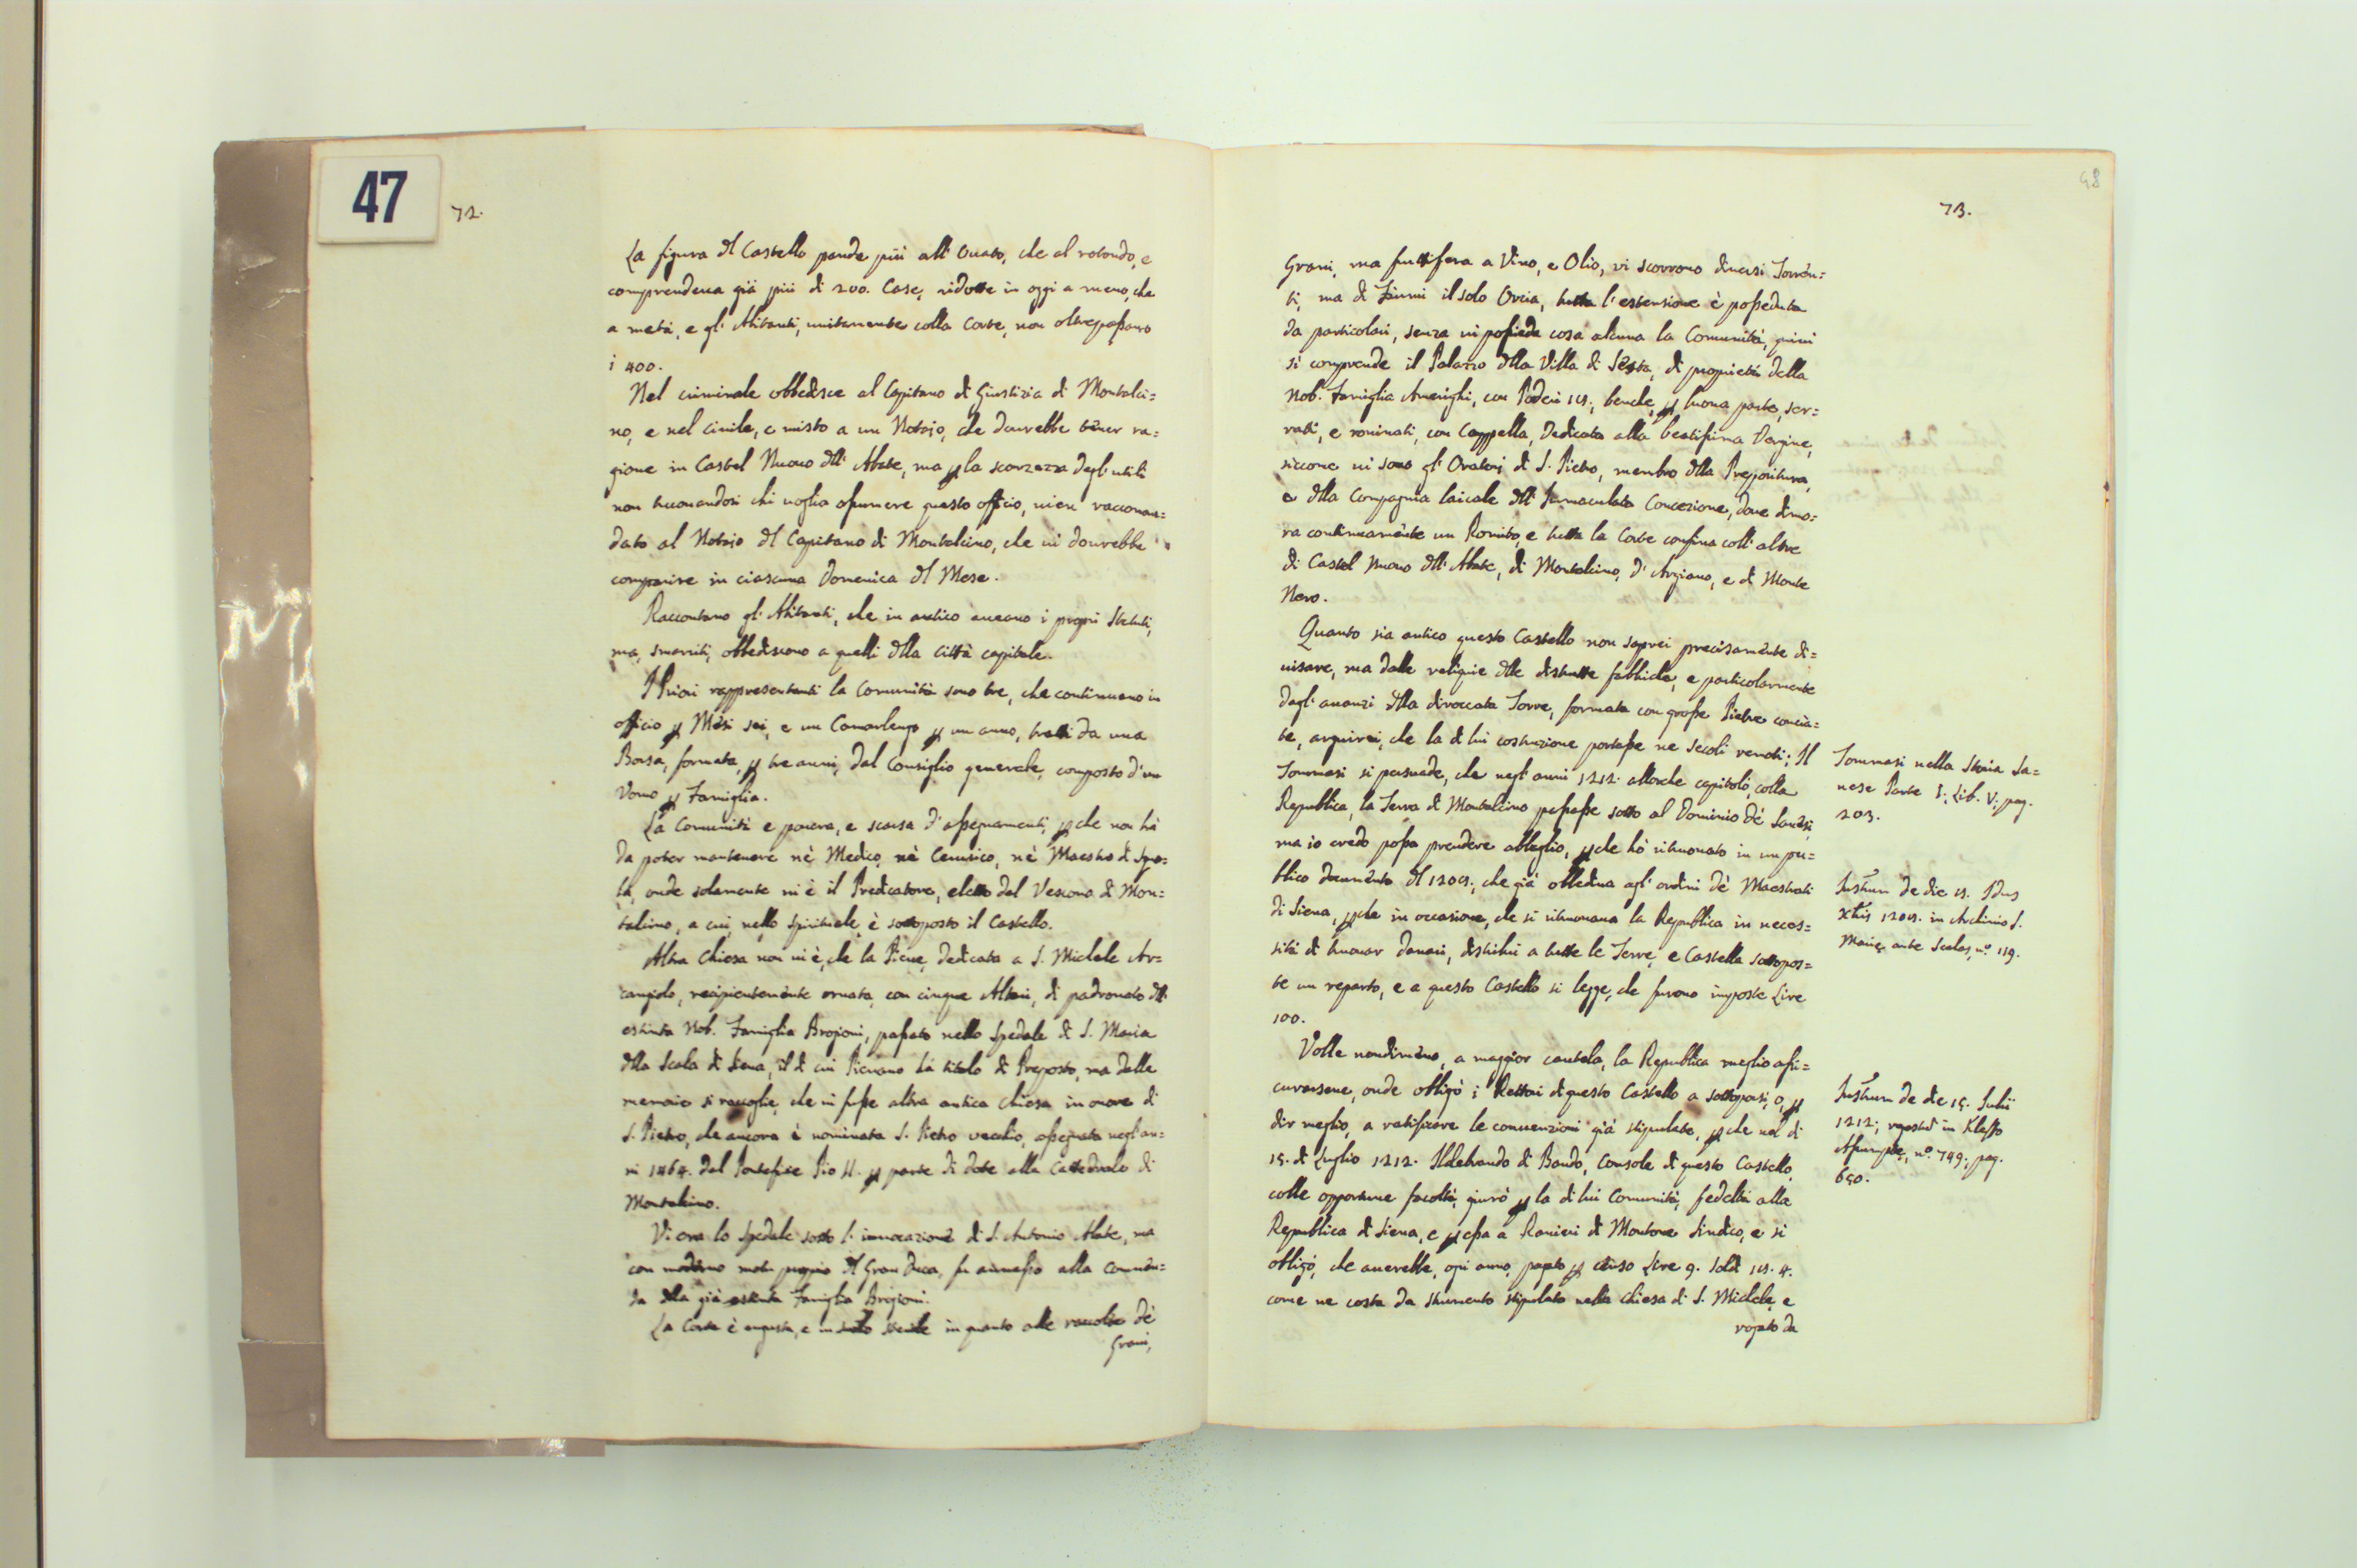 47
72.
La figura dl Castello pende più all'Ouato, che al rotondo, e
comprendeua già più di 200. Case, ridotte in oggi a meno, che
a metà, e gl'Abitanti, unitamente colla Corte, non oltrepaßano
i 400.
Nel criminale obbedisce al Capitano di Giustizia di Montalci=
no, e nel ciuile, e misto a un Notajo, che dourebbe tener ra=
gione in Castel Nuouo dll'Abate, ma p la scarzezza degl'utili
non trouandosi chi uoglia aßumere questo officio, uien raccoman=
dato al Notajo dl Capitano di Montalcino, che ui dourebbe
comparire in ciascuna Domenica dl Mese.
Raccontano gl'Abitanti, che in antico aueano i propri Statuti,
ma, smarriti, obbediscono a quelli dlla Città capitale.
I Priori rappresentanti la Comunità sono tre, che continuano in
officio p Mesi sei, e un Camarlengo p un anno, tratti da una
Borsa, formata, p tre anni, dal Consiglio generale, composto d'un
Vomo p Famiglia.
La Comunità e pouera, e scarsa d'aßegnamenti, pche non hà
da poter mantenere nè Medico, nè Cerusico, nè Maestro di Scuo=
la, onde solamente ui è il Predicatore, eletto dal Vescouo di Mon=
talcino, a cui, nello spirituale, è sottoposto il Castello.
Altra Chiesa non ui è, che la Pieue, dedicata a S. Michele Ar=
cangiolo, recipientemente ornata, con cinque Altari, di padronato dll'
estinta Nob. Famiglia Brogioni, paßato nello Spedale di S. Maria
dlla Scala di Siena, il di cui Pieuano hà titolo di Preposto, ma dalle
memorie si raccoglie, che ui fuße altra antica Chiesa in onore di
S. Pietro, che ancora è nominata S. Pietro uecchio, aßegnata negl'an=
ni 1464. dal Pontefice Pio II. p parte di dote alla Cattedrale di
Montalcino.
Vi era lo Spedale sotto l'inuocazione di S. Antonio Abate, ma
con moderno motu proprio dl Gran Duca, fu annesso alla Commen=
da dlla già estinta Famiglia Brogioni.
La Corte è angusta, e in suolo sterile in quanto alle raccolte de'
Grani,
48
73.
Grani, ma fruttifera a Vino, e Olio, vi scorrono diuersi Torren=
ti, ma di Fiumi il solo Orcia, tutta l'estensione è poßeduta
da particolari, senza ui poßieda cosa alcuna la Comunità, quiui
si comprende il Palazzo dlla Villa di Sesta, di proprietà della
Nob. Famiglia Amerighi, con Poderi 15., benche, p buona parte, ser=
rati, e rouinati, con Cappella, dedicata alla beatißima Vergine,
siccome ui sono gl'Oratorj di S. Pietro, membro dlla Prepositura,
e dlla Compagnia laicale dll'Immaculata Concezione, doue dimo=
ra continuamente un Romito, e tutta la Corte confina coll'altre
di Castel Nuouo dll'Abate, di Montalcino, d'Argiano, e di Monte
Nero.
Quanto sia antico questo Castello non saprei precisamente di=
uisare, ma dalle reliquie dlle distrutte fabbriche, e particolarmente
dagl'auanzi dlla diroccata Torre, formata con große Pietre concia=
te, arguirei, che la di lui costruzione portaße ne Secoli remoti; Il
Tommasi si persuade, che negl'anni 1212. allorche capitolò, colla
Republica, la Terra di Montalcino paßaße sotto al Dominio de' Sanesi,
ma io credo poßa prendere abbaglio, pche hò ritrouato in un pu=
blico documento dl 1205., che già obbediua agl'ordini de' Maestrati
di Siena, pche in occasione, che si ritrouaua la Republica in neces=
sità di trouar danari, distribuì a tutte le Terre, e Castella sottopos=
te un reparto, e a questo Castello si legge, che furono imposte Lire
100.
Volle nondimeno, a maggior cautela, la Republica meglio aßi=
curarsene, onde obligò i Rettori di questo Castello a sottoporsi, o, p
dir meglio, a ratificare le conuenzioni già stipulate, pche nel dì
15. di Luglio 1212. Ildebrando di Bando, Console di questo Castello,
colle opportune facoltà, giurò p la di lui Comunità, fedeltà alla
Republica di Siena, e p eßa a Ranieri di Montone Sindico, e si
obligò, che auerebbe, ogni anno, pagato p censo Lire 9. Soldi 15. 4.
come ne costa da strumento stipulato nella Chiesa di S. Michele, e
rogato da
Tommasi nella Storia Sa=
nese Parte I. Lib. V. pag.
203.
Instrum de die 15. Idus
Xbris 1205. in Archiuio S.
Mariæ ante Scalas, n.º 119.
Instrum de die 15. Julii
1212; in Kleffo
n.º 749; pag.
650.